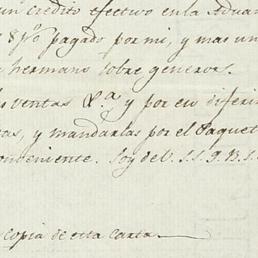 un credito efectivo en la Aduan
pagado por mi, y mas un
hermano sobre generos.
ventas &.a y por eso diferi
as, y mandarlas por el Paquet
onveniente. Soy de V. S. S. Q. B. S.
copia de esta carta